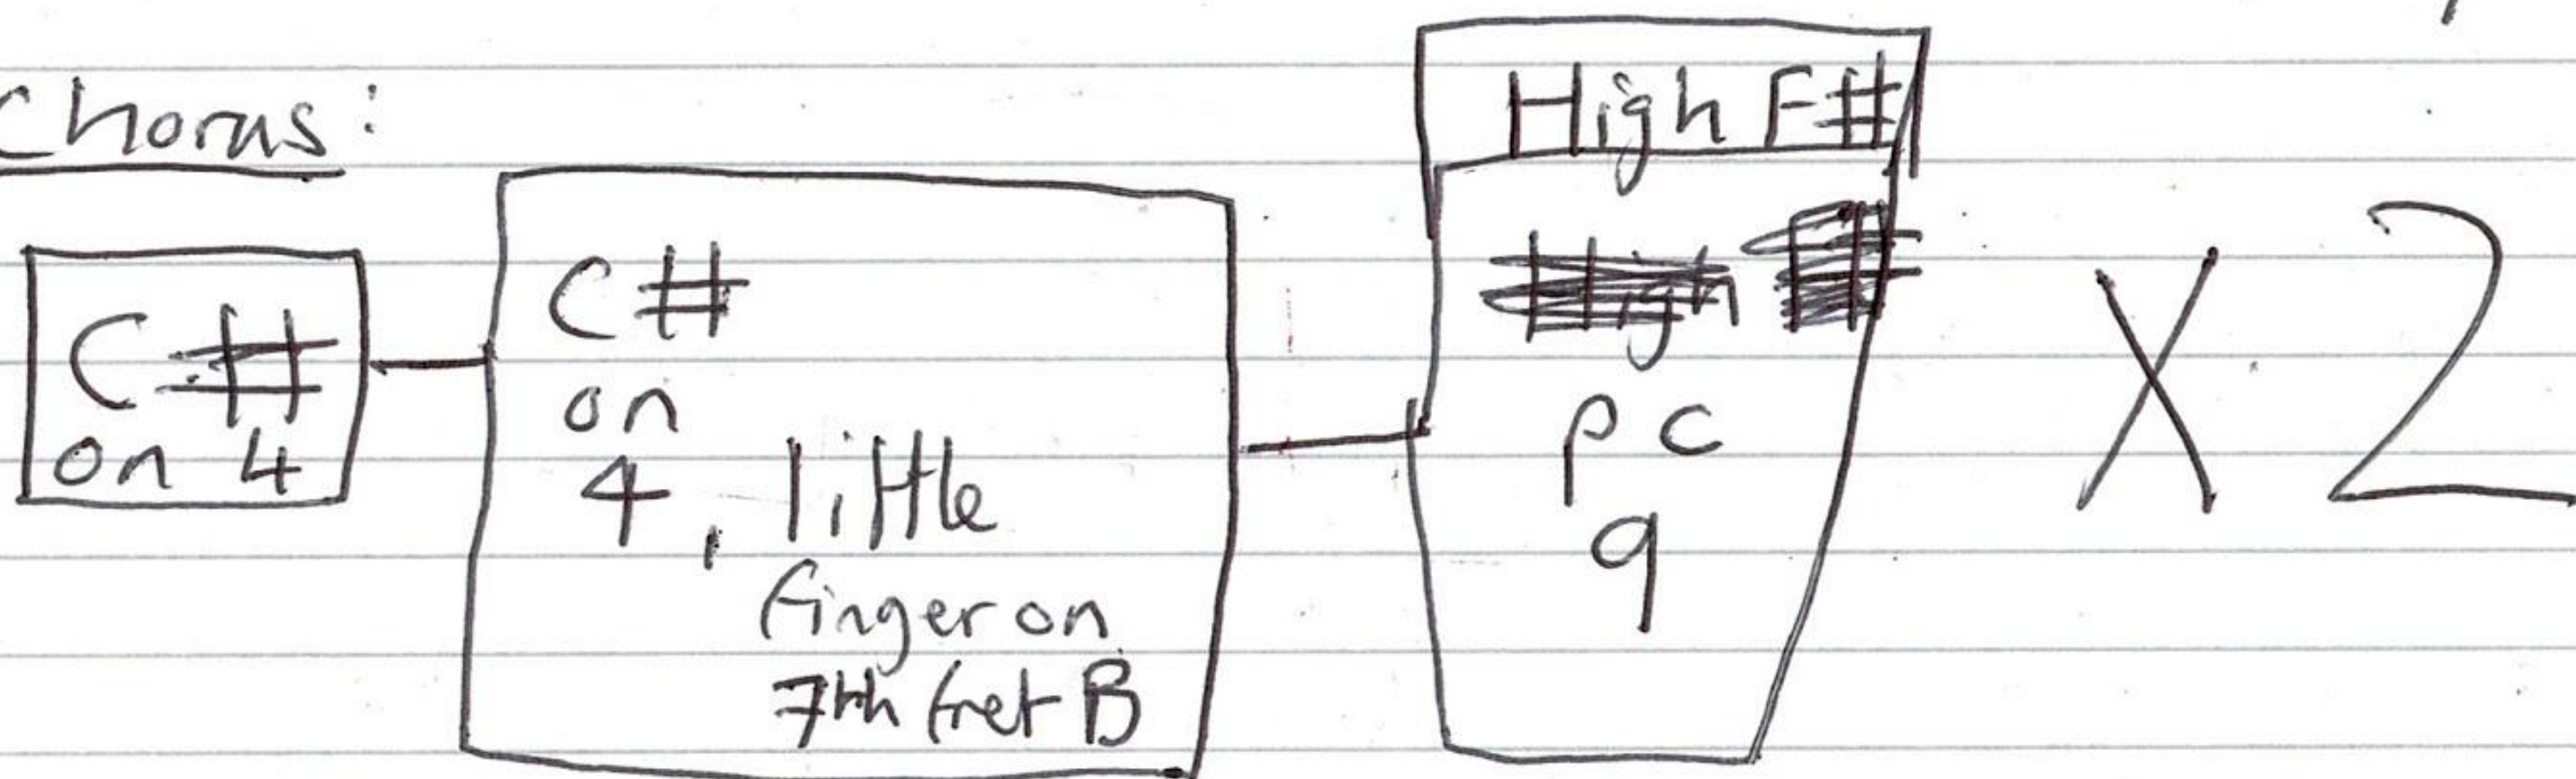 Chorus:
C#
on 4
C#
on
4, little
finger on
7th fret B
High F#
High
pc
9
X2